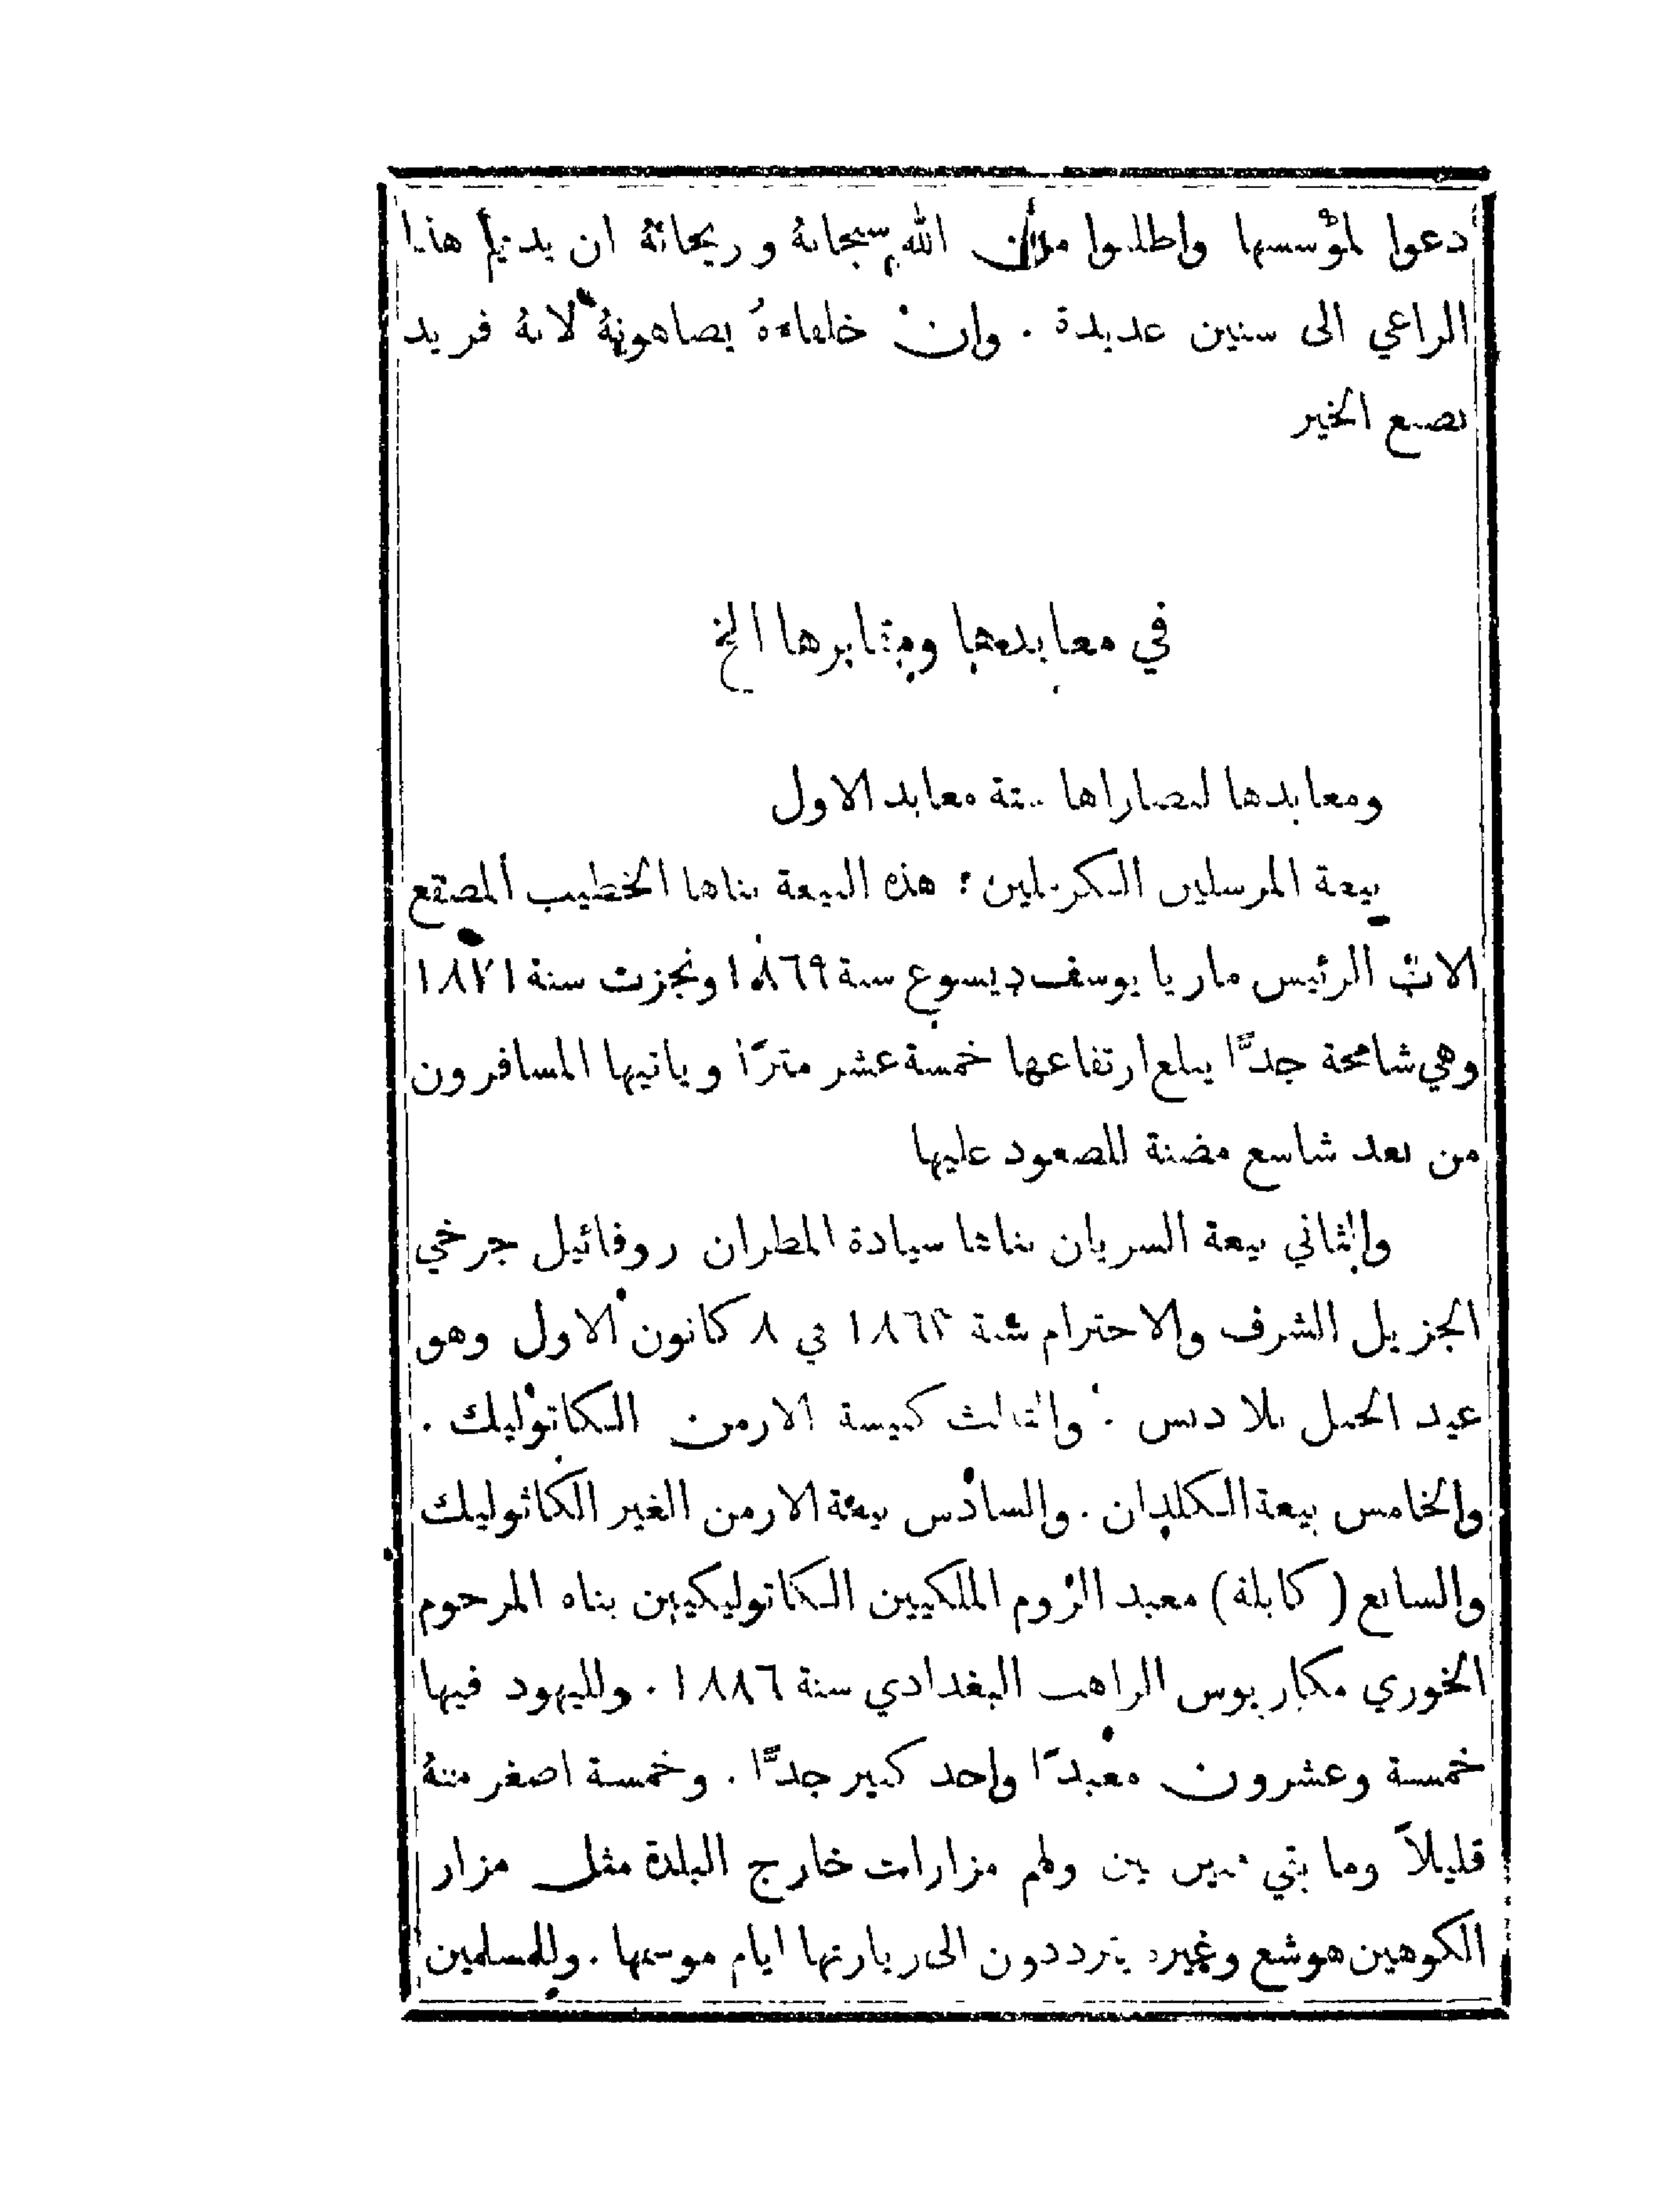 دعوا لمؤسسها واطلبوا من الله سبحانهُ وريحانهُ ان يديم هذا
الراعي الى سنين عديدة . وان خلفاءهُ يضاهونهُ لانهُ فريد
بصنع الخير
في معابدها ومقابرها الخ
ومعابدها لنصاراها ستة معابد الاول
بيعة المرسلين الكرمليين : هذه البيعة بناها الخطيب المصقع
الاب الرئيس ماريا يوسف ديسوع سنة ١٨٦٩ ونجزت سنة ١٨٧١
وهي شامخة جدًّا يبلغ ارتفاعها خمسة عشر مترًا وياتيها المسافرون
من بعد شاسع مضنة للصعود عليها
والثاني بيعة السريان بناها سيادة المطران روفائيل جرخي
الجزيل الشرف والاحترام سنة ١٨٦٢ في ٨ كانون الاول وهو
عيد الحبل بلا دنس . والثالث كنيسة الارمن الكاتوليك .
والخامس بيعة الكلدان . والسادس بيعة الارمن الغير الكاثوليك
والسابع (كابلة) معبد الروم الملكيين الكاتوليكيين بناه المرحوم
الخوري مكاريوس الراهب البغدادي سنة ١٨٨٦ . ولليهود فيها
خمسة وعشرون معبدًا واحد كبير جدًّا . وخمسة اصغر منهُ
قليلاً وما بقي بين بين ولهم مزارات خارج البلدة مثل مزار
الكوهين هوشع وغيره يترددون الى زيارتها ايام موسمها . وللمسلمين